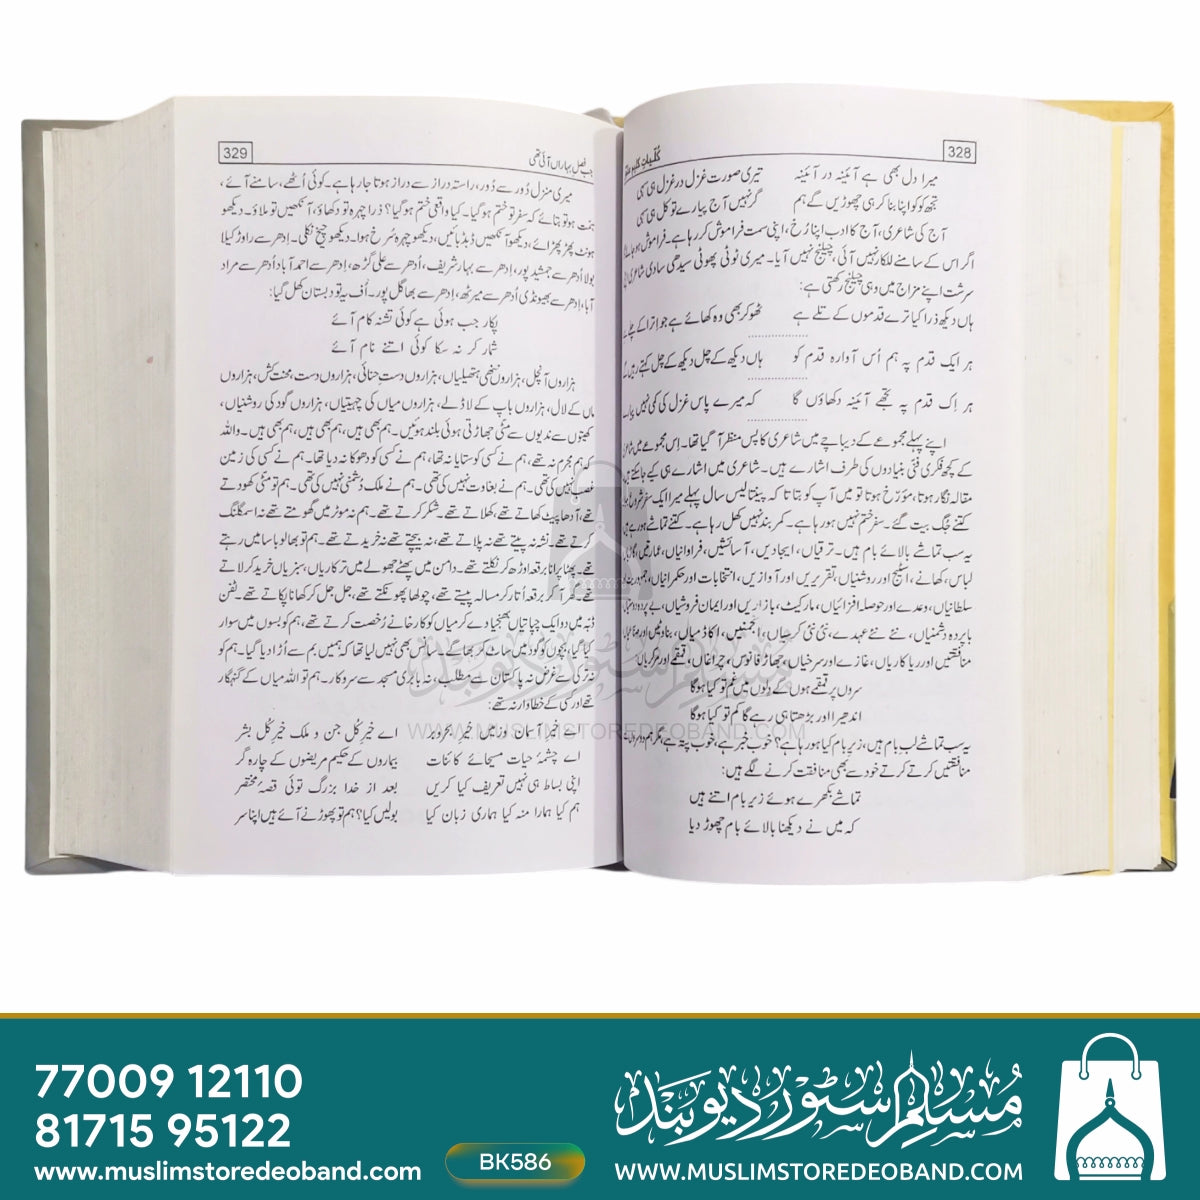 328
کلیاتِ کلیم
میرا دل بھی ہے آئینہ در آئینہ تیری صورت غزل در غزل ہی سہی
تجھ کو اپنا بنا کر ہی چھوڑیں گے ہم گر نہیں آج پیارے تو کل ہی سہی
آج کی شاعری، آج کا ادب اپنا رُخ، اپنی سمت فراموش کر رہا ہے۔ فراموش
اگر اس کے سامنے للکار نہیں آئی، چیلنج نہیں آیا۔ میری ٹوٹی پھوٹی سیدھی سادی شاعری
سرشت اپنے مزاج میں وہی چیلنج رکھتی ہے:
ہاں دیکھ ذرا کیا ترے قدموں کے تلے ہے ٹھوکر بھی وہ کھائے ہے جو اِترا کے چلے
ہر ایک قدم پہ ہم اُس آوارہ قدم کو ہاں دیکھ کے چل دیکھ کے چل کہتے رہیں گے
ہر اِک قدم پہ تجھے آئینہ دکھاؤں گا کہ میرے پاس غزل کی کمی نہیں پیارے
اپنے پہلے مجموعے کے دیباچے میں شاعری کا پس منظر آ گیا تھا۔ اِس مجموعے میں
کے کچھ فکری فنی بنیادوں کی طرف اشارے ہیں۔ شاعری میں اشارے ہی کیے جا سکتے
مقالہ نگار ہوتا، مؤرّخ ہوتا تو میں آپ کو بتاتا کہ پینتالیس سال پہلے میرا ایک سفر شروع
کتنے جُگ بیت گئے۔ سفر ختم نہیں ہو رہا ہے۔ کمر بند نہیں کھل رہا ہے۔ کتنے تماشے ہو رہے
یہ سب تماشے بالائے بام ہیں۔ ترقیاں، ایجادیں، آسائشیں، فراوانیاں، عمارتیں
لباس، کھانے، اسٹیج اور روشنیاں، تقریریں اور آوازیں، انتخابات اور حکمرانیاں،
سلطانیاں، وعدے اور حوصلہ افزائیاں، مارکیٹ، بازاریں اور ایمان فروشیاں، بے پردہ
باپردہ دشمنیاں، نئے نئے عہدے، نئی نئی کرسیاں، انجمنیں، اکاڈمیاں،
منافقتیں اور ریاکاریاں، غازے اور سرخیاں، جھاڑ فانوس، چراغاں، قمقے اور
سروں پر قمقے ہوں گے دلوں میں غم تو کیا ہوگا
اندھیرا اور بڑھتا ہی رہے گا کم تو کیا ہوگا
یہ سب تماشے لبِ بام ہیں، زیرِ بام کیا ہو رہا ہے؟ خوب خبر ہے، خوب پتہ ہے، مگر ہم
منافقتیں کرتے کرتے خود سے بھی منافقت کرنے لگے ہیں:
تماشے بکھرے ہوئے زیرِ بام اتنے ہیں
کہ میں نے دیکھنا بالائے بام چھوڑ دیا
جب فصل بہاراں آئی تھی
329
میری منزل دُور سے دُور، راستہ دراز سے دراز ہوتا جا رہا ہے۔ کوئی اُٹھے، سامنے آئے،
ہمت ہو تو بتائے کہ سفر تو ختم ہو گیا۔ کیا واقعی ختم ہو گیا؟ ذرا چہرہ تو دکھاؤ، آنکھیں تو ملاؤ۔ دیکھو
ہونٹ پھڑپھڑائے، دیکھو آنکھیں ڈبڈبائیں، دیکھو چہرہ سُرخ ہوا۔ دیکھو چیخ نکلی۔ اِدھر سے راوڑکیلا
بولا اُدھر سے جمشید پور، اِدھر سے بہار شریف، اُدھر سے علی گڑھ، اِدھر سے احمد آباد اُدھر سے مراد
آباد، اِدھر سے بھیونڈی اُدھر سے میرٹھ، اِدھر سے بھاگل پور۔ اُف یہ تو دبستان کھل گیا:
پکار جب ہوئی ہے کوئی تشنہ کام آئے
شمار کر نہ سکا کوئی اتنے نام آئے
ہزاروں آنچل، ہزاروں ننھی ہتھیلیاں، ہزاروں دستِ حنائی، ہزاروں دست، محنت کش، ہزاروں
ماں کے لال، ہزاروں باپ کے لاڈلے، ہزاروں میاں کی چہیتیاں، ہزاروں گود کی روشنیاں،
کھیتوں سے ندیوں سے مٹی جھاڑتی ہوئی بلند ہوئیں۔ ہم بھی ہیں، ہم بھی ہیں، ہم بھی ہیں۔ واللہ
کہ ہم مجرم نہ تھے، ہم نے کسی کو ستایا نہ تھا، ہم نے کسی کو دھوکا نہ دیا تھا۔ ہم نے کسی کی زمین
غصب نہیں کی تھی۔ ہم نے بغاوت نہیں کی تھی۔ ہم نے ملک دُشمنی نہیں کی تھی۔ ہم تو مٹی کھودتے
تھے، آدھا پیٹ کھاتے تھے، کھلاتے تھے۔ شکر کرتے تھے۔ ہم نہ موٹر میں گھومتے تھے نہ اسمگلنگ
کرتے تھے۔ نشہ نہ پیتے تھے نہ پلاتے تھے، نہ بیچتے تھے نہ خریدتے تھے۔ ہم تو بھالو باسا میں رہتے
تھے۔ پھٹا پرانا برقعہ اوڑھ کر نکلتے تھے۔ دامن میں پھٹے جھولے میں ترکاریاں، سبزیاں خرید کر لاتے
تھے۔ گھر آ کر برقعہ اُتار کر مسالہ پیستے تھے، چولھا پھونکتے تھے، جل جل کر کھانا پکاتے تھے۔ ٹفن
ڈبّہ میں دو ایک چپاتیاں بُھجیا دے کر میاں کو کارخانے رُخصت کرتے تھے، ہم کو بسوں میں سوار
کیا گیا، بچوں کو گود میں سمیٹ کر بھاگے۔ سانس بھی نہیں لیا تھا کہ ہمیں بم سے اُڑا دیا گیا۔ ہم کو
نہ ترکی سے غرض نہ پاکستان سے مطلب، نہ بابری مسجد سے سروکار۔ ہم تو اللہ میاں کے گنہگار
تھے اور کسی کے خطاوار نہ تھے:
اے خیرِ کُل جن و ملک خیرِ کُل بشر خیرِ آسمان و زمیں خیرِ بحر و بر
اے چشمۂ حیات مسیحائے کائنات بیماروں کے حکیم مریضوں کے چارہ گر
اپنی بساط ہی نہیں تعریف کیا کریں بعد از خدا بزرگ توئی قصۂ مختصر
ہم کیا ہمارا منہ کیا ہماری زبان کیا بولیں کیا؟ ہم تو پھوڑنے آئے ہیں اپنا سر
مسلم سٹور دیوبند
WWW.MUSLIMSTOREDEOBAND.COM
77009 12110
81715 95122
www.muslimstoredeoband.com
BK586
مسلم سٹور دیوبند
WWW.MUSLIMSTOREDEOBAND.COM